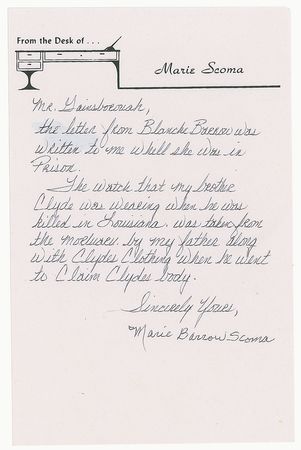 From the Desk of . . .
Marie Scoma
Mr. Gainsborough,
the letter from Blanche Barrow was
written to me whell she was in
Prison.
The watch that my brothie
Clyde was wearing when he was
killed in Louisiana. was taken from
the mortuary by my father along
with Clydes Clothing when he went
to Claim Clydes body.
Sincerely Yours,
Marie Barrow Scoma